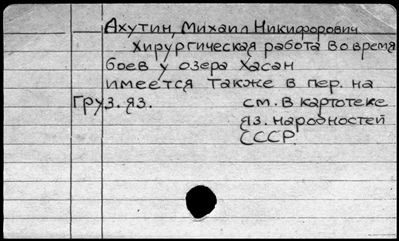 Ахутин, Михаил Никифорович
Хирургическая работа во время
боев у озера Хасан
имеется также в пер. на
груз. яз. см. в картотеке
яз. народностей
СССР.